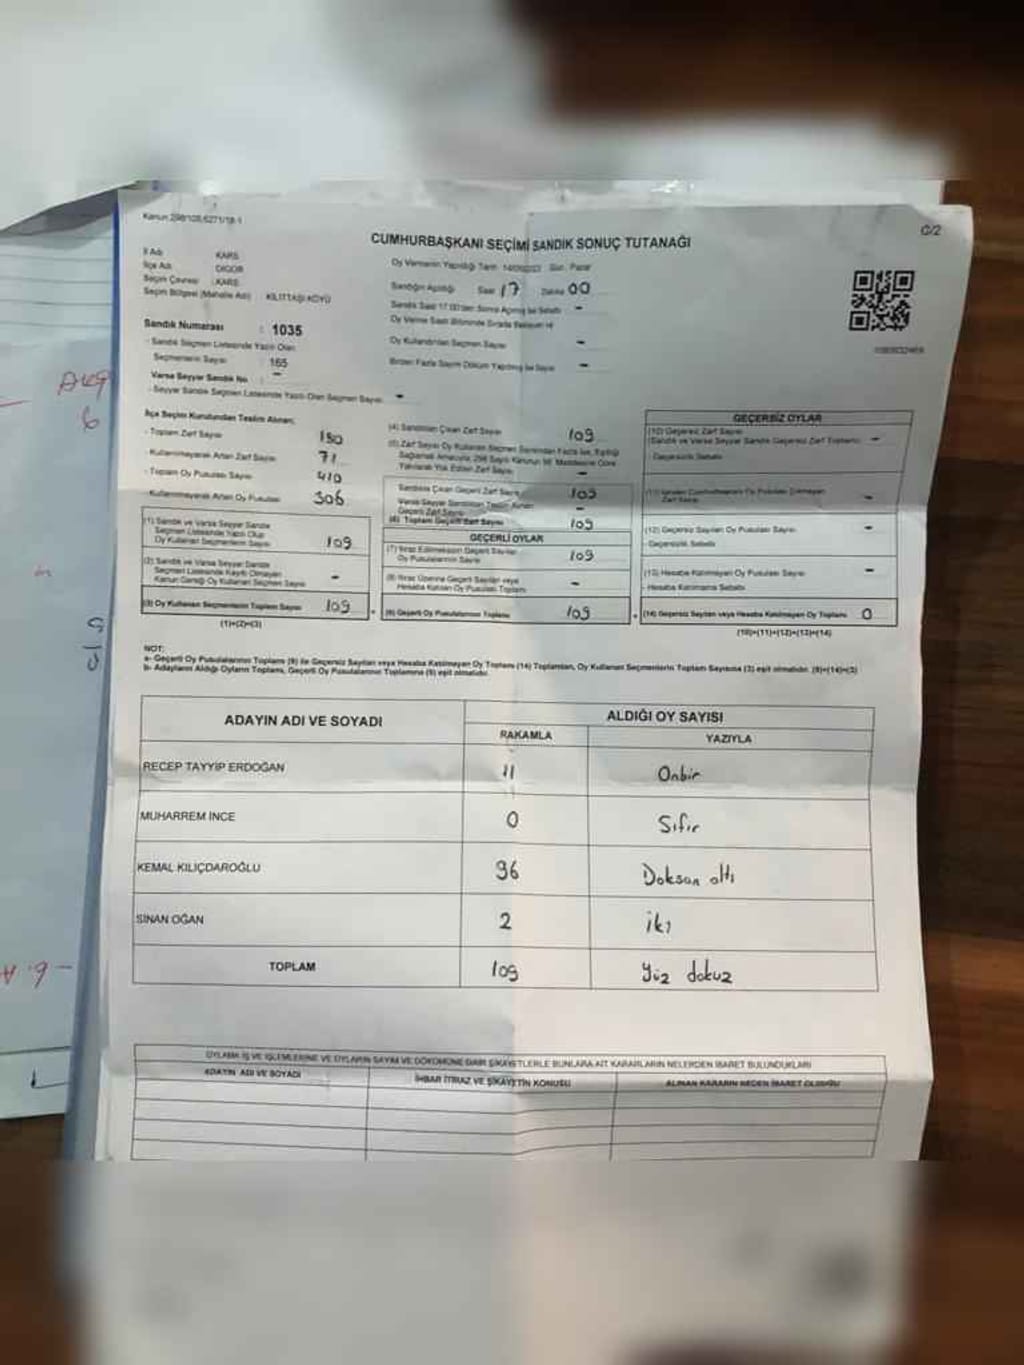 Kanun:298/105,6271/18-1
C/2
CUMHURBAŞKANI SEÇİMİ SANDIK SONUÇ TUTANAĞI
İl Adı KARS
İlçe Adı DİGOR
Seçim Çevresi : KARS
Seçim Bölgesi (Mahalle Adı) KİLİTTAŞI KÖYÜ
Sandık Numarası : 1035
- Sandık Seçmen Listesinde Yazılı Olan
Seçmenlerin Sayısı 165
Varsa Seyyar Sandık No : -
- Seyyar Sandık Seçmen Listesinde Yazılı Olan Seçmen Sayısı -
Oy Vermenin Yapıldığı Tarih Gün: Pazar
Sandığın Açıldığı Saat 17 Dakika 00
Sandık Saat 17.00'den Sonra Açılmış ise Sebebi -
Oy Verme Saati Bitiminde Sırada Bekleyen ve
Oy Kullandırılan Seçmen Sayısı -
Birden Fazla Sayım Döküm Yapılmış ise Sayısı -
İlçe Seçim Kurulundan Teslim Alınan;
- Toplam Zarf Sayısı 180
- Kullanılmayarak Artan Zarf Sayısı 71
- Toplam Oy Pusulası Sayısı 410
- Kullanılmayarak Artan Oy Pusulası 306
(1) Sandık ve Varsa Seyyar Sandık
Seçmen Listesinde Yazılı Olup
Oy Kullanan Seçmenlerin Sayısı 109
(2) Sandık ve Varsa Seyyar Sandık
Seçmen Listesinde Kayıtlı Olmayan
Kanun Gereği Oy Kullanan Seçmen Sayısı -
(3) Oy Kullanan Seçmenlerin Toplam Sayısı 109
(1)+(2)=(3)
(4) Sandıktan Çıkan Zarf Sayısı 109
(5) Zarf Sayısı Oy Kullanan Seçmen Sayısından Fazla ise, Eşitliği
Sağlamak Amacıyla, 298 Sayılı Kanunun 98. Maddesine Göre
Yakılarak Yok Edilen Zarf Sayısı -
Sandıkta Çıkan Geçerli Zarf Sayısı 109
Varsa Seyyar Sandıktan Teslim Alınan
Geçerli Zarf Sayısı -
(6) Toplam Geçerli Zarf Sayısı 109
GEÇERLİ OYLAR
(7) İtiraz Edilmeksizin Geçerli Sayılan
Oy Pusulalarının Sayısı 109
(8) İtiraz Üzerine Geçerli Sayılan veya
Hesaba Katılan Oy Pusulası Toplamı -
(9) Geçerli Oy Pusulalarının Toplamı 109
GEÇERSİZ OYLAR
(10) Geçersiz Zarf Sayısı
(Sandık ve Varsa Seyyar Sandık Geçersiz Zarf Toplamı) -
- Geçersizlik Sebebi:
(11) İçinden Cumhurbaşkanı Oy Pusulası Çıkmayan
Zarf Sayısı -
(12) Geçersiz Sayılan Oy Pusulası Sayısı -
- Geçersizlik Sebebi:
(13) Hesaba Katılmayan Oy Pusulası Sayısı -
- Hesaba Katılmama Sebebi:
(14) Geçersiz Sayılan veya Hesaba Katılmayan Oy Toplamı 0
(10)+(11)+(12)+(13)=(14)
NOT:
a- Geçerli Oy Pusulalarının Toplamı (9) ile Geçersiz Sayılan veya Hesaba Katılmayan Oy Toplamı (14) Toplamları, Oy Kullanan Seçmenlerin Toplam Sayısına (3) eşit olmalıdır. (9)+(14)=(3)
b- Adayların Aldığı Oyların Toplamı, Geçerli Oy Pusulalarının Toplamına (9) eşit olmalıdır.
ADAYIN ADI VE SOYADI
ALDIĞI OY SAYISI
RAKAMLA YAZIYLA
RECEP TAYYİP ERDOĞAN 11 Onbir
MUHARREM İNCE 0 Sıfır
KEMAL KILIÇDAROĞLU 96 Doksan altı
SİNAN OĞAN 2 iki
TOPLAM 109 Yüz dokuz
OYLAMA İŞ VE İŞLEMLERİNE VE OYLARIN SAYIM VE DÖKÜMÜNE DAİR ŞİKAYETLERLE BUNLARA AİT KARARLARIN NELERDEN İBARET BULUNDUKLARI
ADAYIN ADI VE SOYADI İHBAR İTİRAZ VE ŞİKAYETİN KONUSU ALINAN KARARIN NEDEN İBARET OLDUĞU